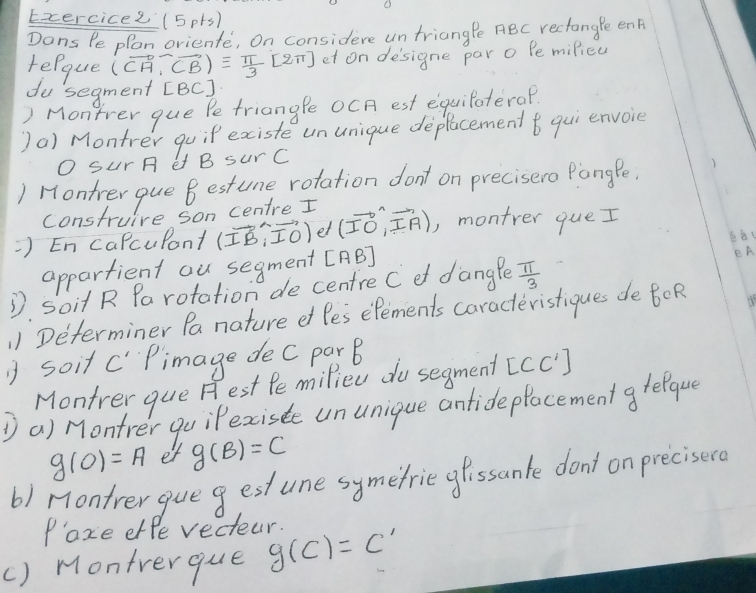 Exercice 2: (5 pts)
Dans le plan orienté, On considère un triangle ABC rectangle en A
telque (CA, CB) ≡ π/3 [2π] et on désigne par O le milieu
du segment [BC].
) Montrer que le triangle OCA est équilatéral.
)a) Montrer qu'il existe un unique déplacement f qui envoie
O sur A et B sur C
) Montrer que f est une rotation dont on precisera l'angle.
Construire son centre I
:) En calculant (IB, IO) et (IO, IA), montrer que I
appartient au segment [AB]
). Soit R la rotation de centre C et d'angle π/3
) Déterminer la nature et les éléments caractéristiques de foR
) Soit C' l'image de C par f
Montrer que A est le milieu du segment [CC']
) a) Montrer qu'il existe un unique antideplacement g telque
g(O) = A et g(B) = C
b) Montrer que g est une symétrie glissante dont on précisera
l'axe et le vecteur.
c) Montrer que g(C) = C'